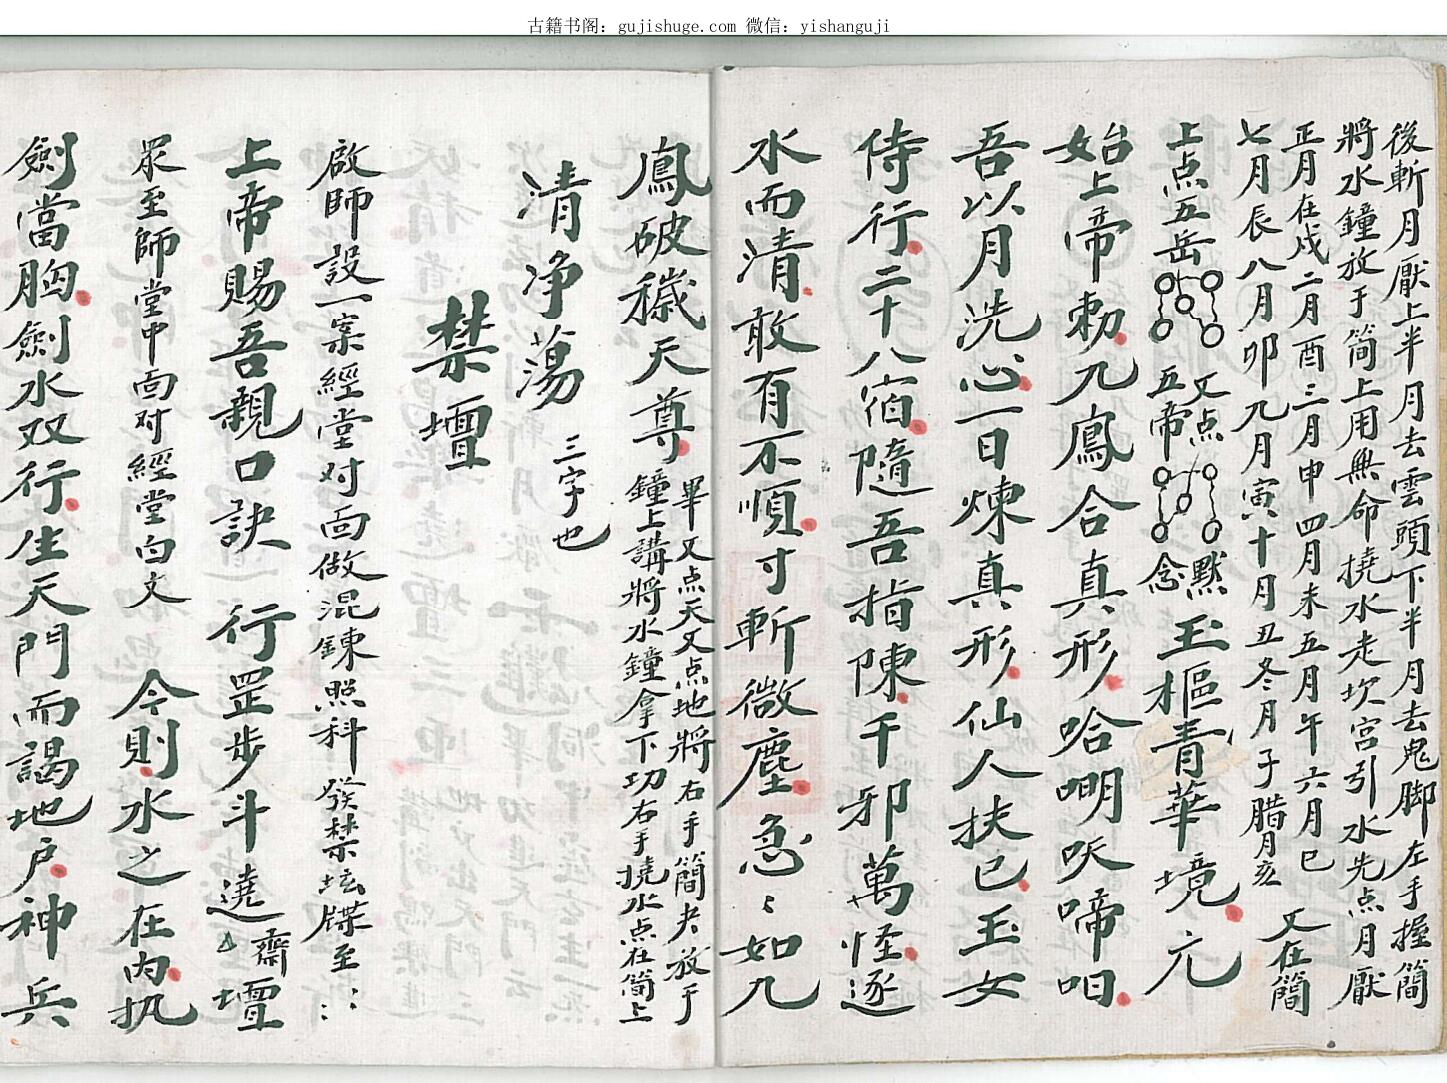 古籍书阁：gujishuge.com 微信：yishanguji
後斬月厭上半月去雲頭下半月去鬼脚左手握簡
將水鐘放于簡上用無命撓水走坎宮引水先点月厭
正月在戍二月酉三月申四月未五月午六月巳
七月辰八月卯九月寅十月丑冬月子腊月亥
又在簡
上点五岳
又点
五帝
默
念
玉樞青華境元
始上帝勅九鳳合真形哈㗂呅啼呬
吾以月洗心一日煉真形仙人扶已玉女
侍行二十八宿隨吾指陳千邪萬怪逐
水而清敢有不順寸斬微塵急〻如九
鳳破穢天尊
畢又点天又点地將右手簡夬放于
鐘上講將水鐘拿下功右手撓水点在簡上
清净蕩
三字也
禁壇
啟師設一案經堂对面做混鍊照科發禁坛牒至
上帝賜吾親口訣行罡步斗遶
齋
壇
眾至師堂中面对經堂白文
今則水之在内执
劍當胸劍水双行生天門而謁地户神兵